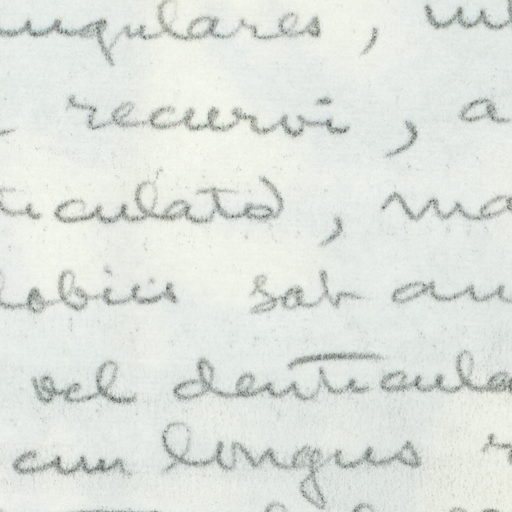 ngulares, in
recurvi, a
ticulato, ma
lobiis sab an
vel denticula
cum longus r